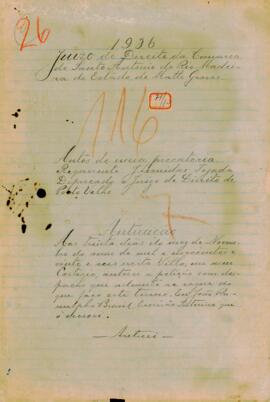 26
1936
Juizo de Direito da Comarca
de Santo Antonio do Rio Madei-
ra do Estado de Matto Grosso
116
7
Autos de uma precatoria
Requerente
Deprecado o Juizo de Direito de
Porto Velho
Autuação
Aos trinta dias do mez de Novem-
bro do anno de mil e novecentos e
nesta Villa, em meu
Cartorio, autuei a petição com des-
pacho que adiante se segue do
que faço este termo. Eu, João
Brasil, Escrivão Interino que
o escrevi.